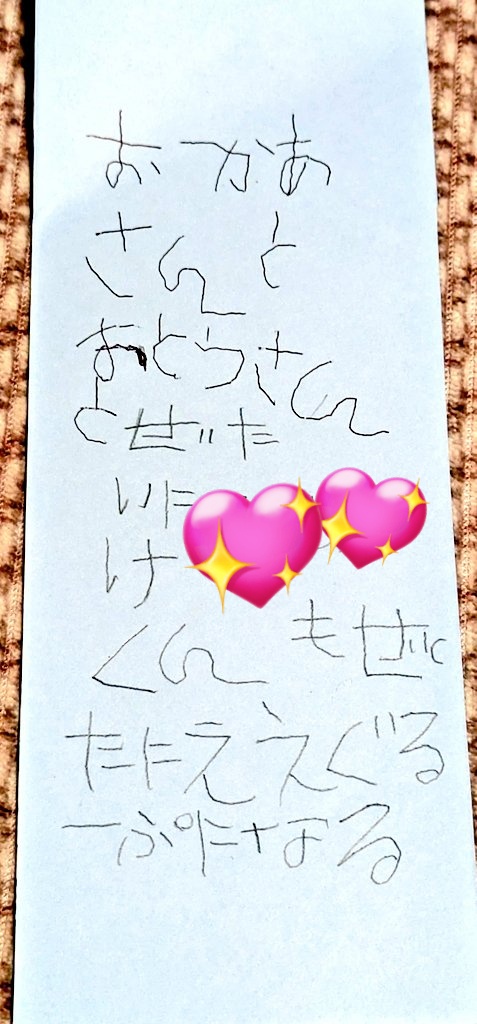 おかあ
さんと
おとうさん
とぜた
いに
け
くんもぜっ
たにええぐる
ーぷになる